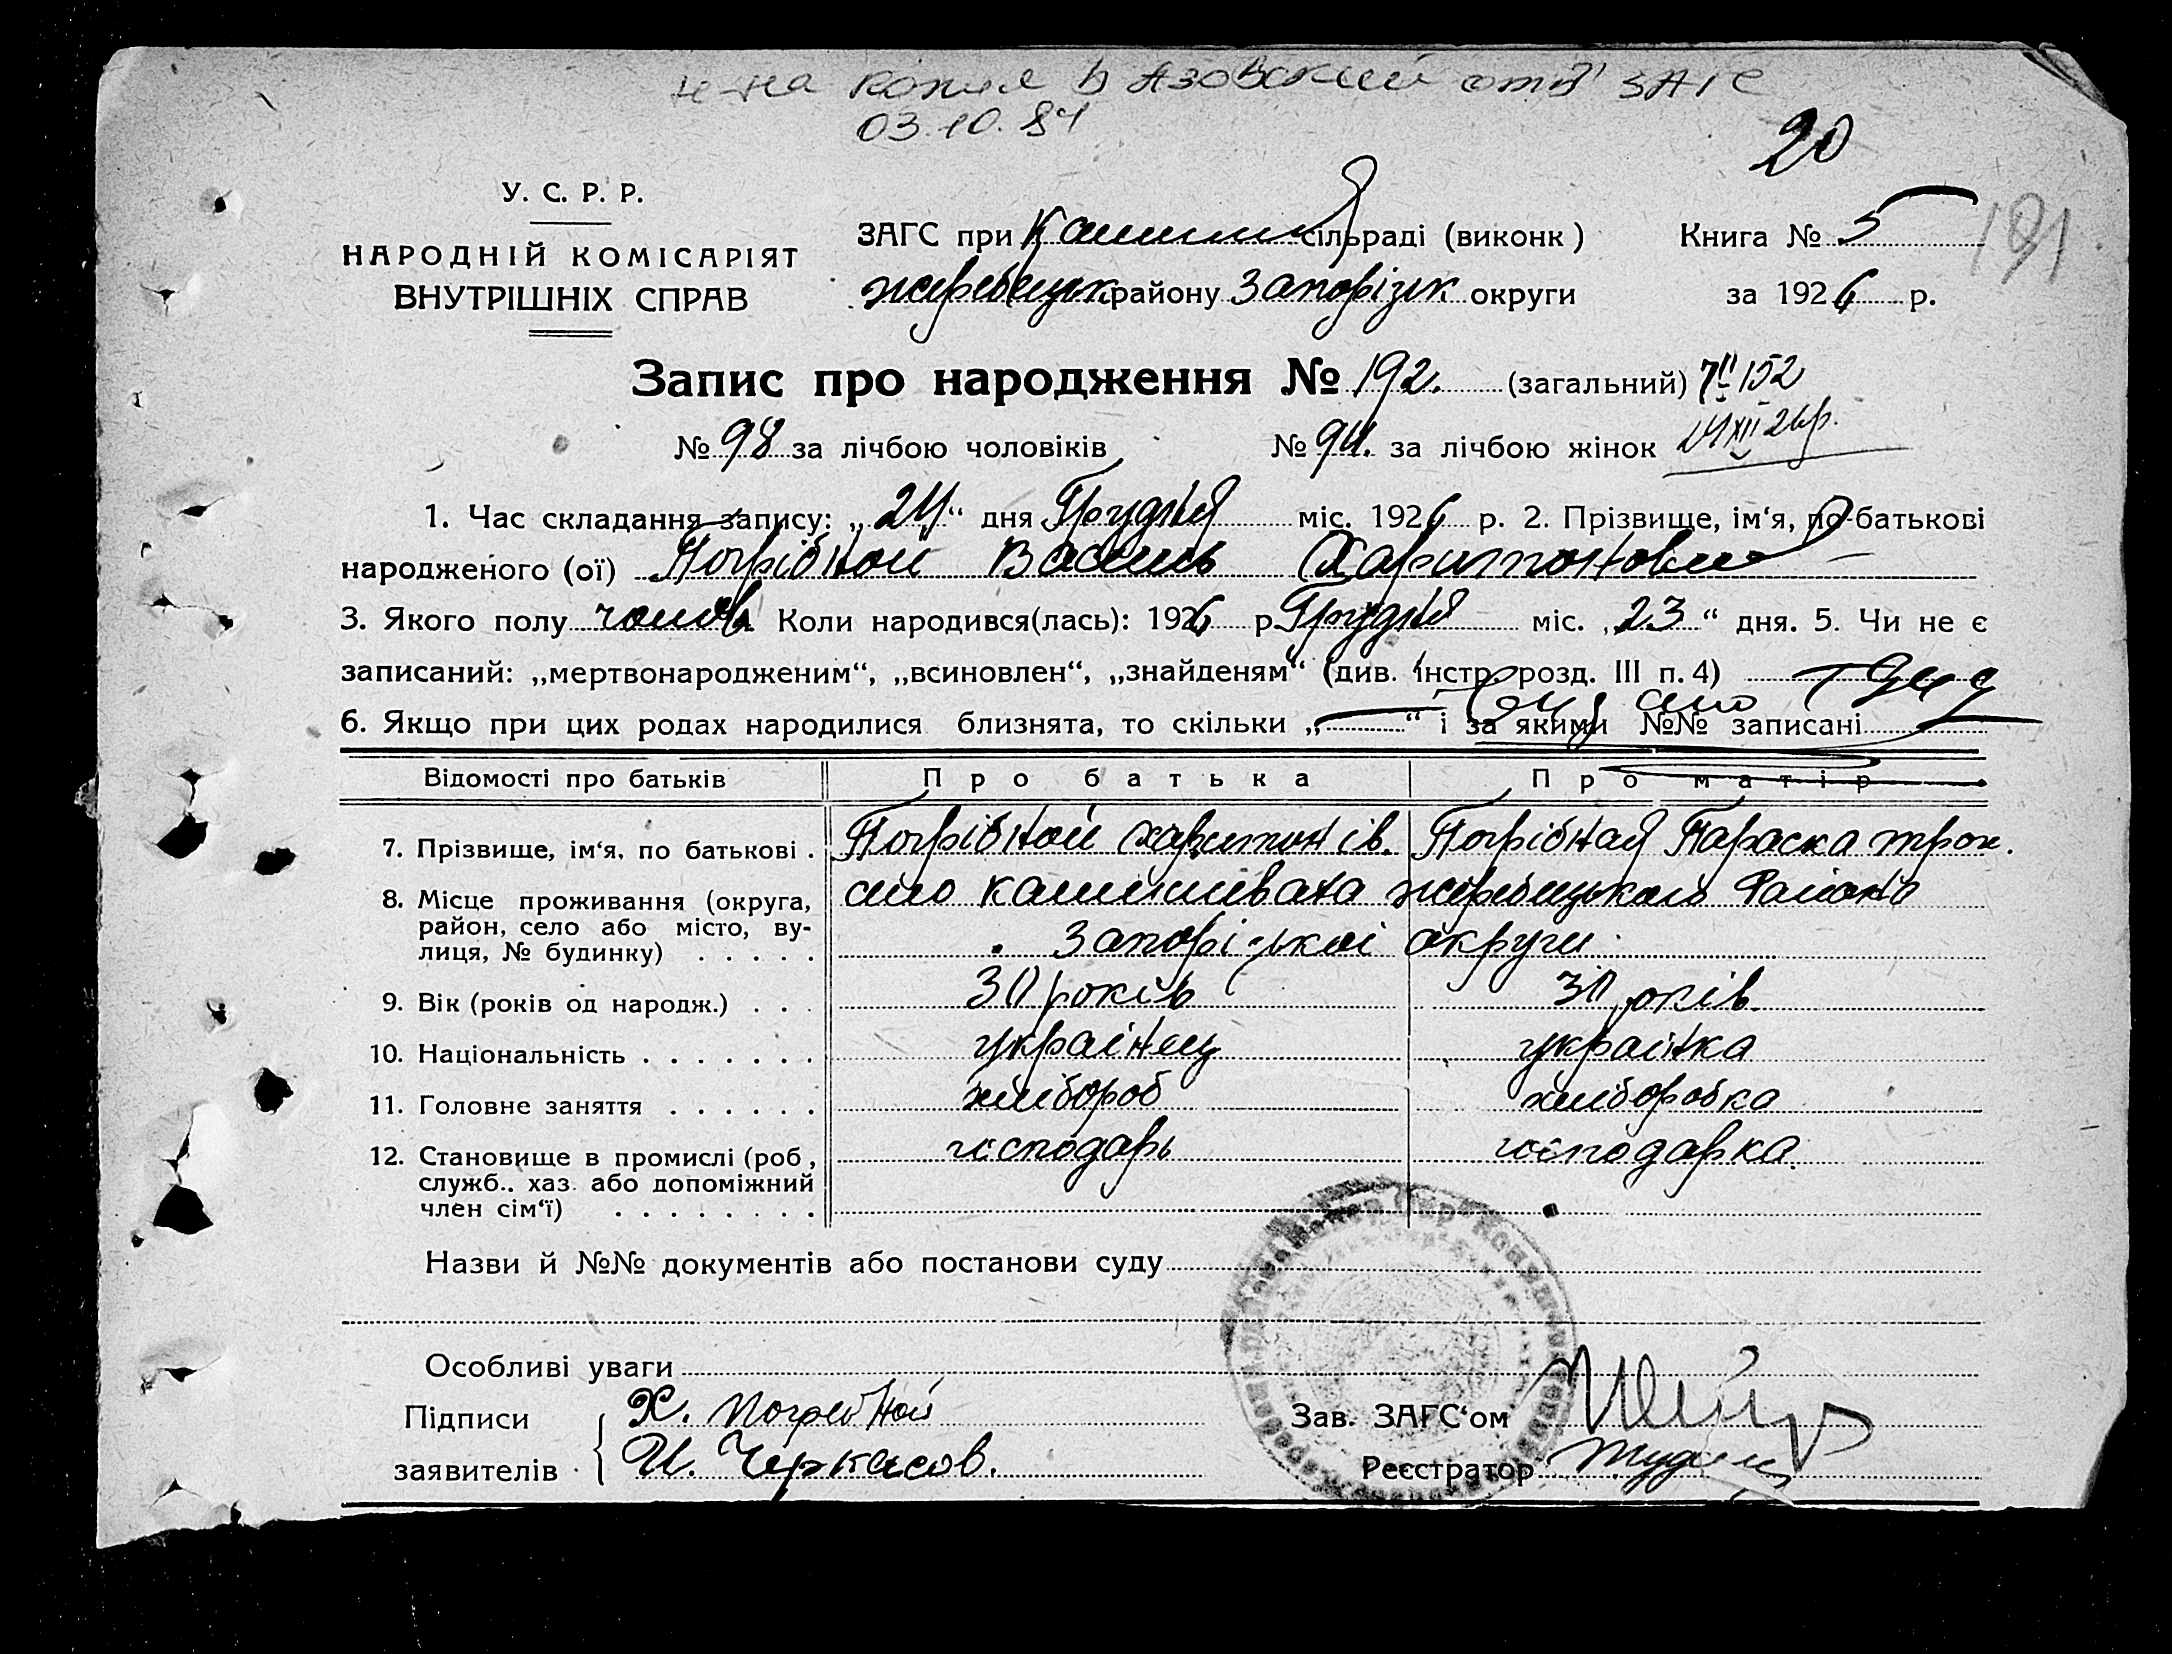 копия в Азовский отд ЗАГС
03.10.84
20
У. С. Р. Р.
НАРОДНІЙ КОМІСАРІЯТ
ВНУТРІШНІХ СПРАВ
ЗАГС при сільраді (виконк)
жеребецьк району Запорізьк округи
Книга № 5
за 1926 р.
191
Запис про народження № 192. (загальний) 152
№ 98 за лічбою чоловіків № 94. за лічбою жінок 24 XII 26 р.
1. Час складання запису: „24“ дня Грудня міс. 1926 р. 2. Прізвище, ім‘я, по-батькові
народженого (ої) Погрібной Василь Харитонович
3. Якого полу чолов. Коли народився(лась): 1926 р. Грудня міс. „23“ дня. 5. Чи не є
записаний: „мертвонародженим“, „всиновлен“, „знайденям“ (див. Інстр. розд. III п. 4)
6. Якщо при цих родах народилися близнята, то скільки „—“ і за якими №№ записані
Відомості про батьків Про батька Про матір
7. Прізвище, ім‘я, по батькові . Погрібной Харитон ів. Погрібная Параска трох.
8. Місце проживання (округа, село Камишеваха жеребецького Району
район, село або місто, ву- Запорізькоі округи
лиця, № будинку) . . . . .
9. Вік (років од народж.) . . . 30 років 30 років.
10. Національність . . . . . . . украінец украінка
11. Головне заняття . . . . . . хлібороб хлібородка
12. Становище в промислі (роб, господарь господарка
служб., хаз. або допоміжний
член сім‘ї) . . . . . . . .
Назви й №№ документів або постанови суду
Особливі уваги
Підписи Х. Погребной
заявителів И. Черкасов.
Зав. ЗАГС‘ом
Реєстратор